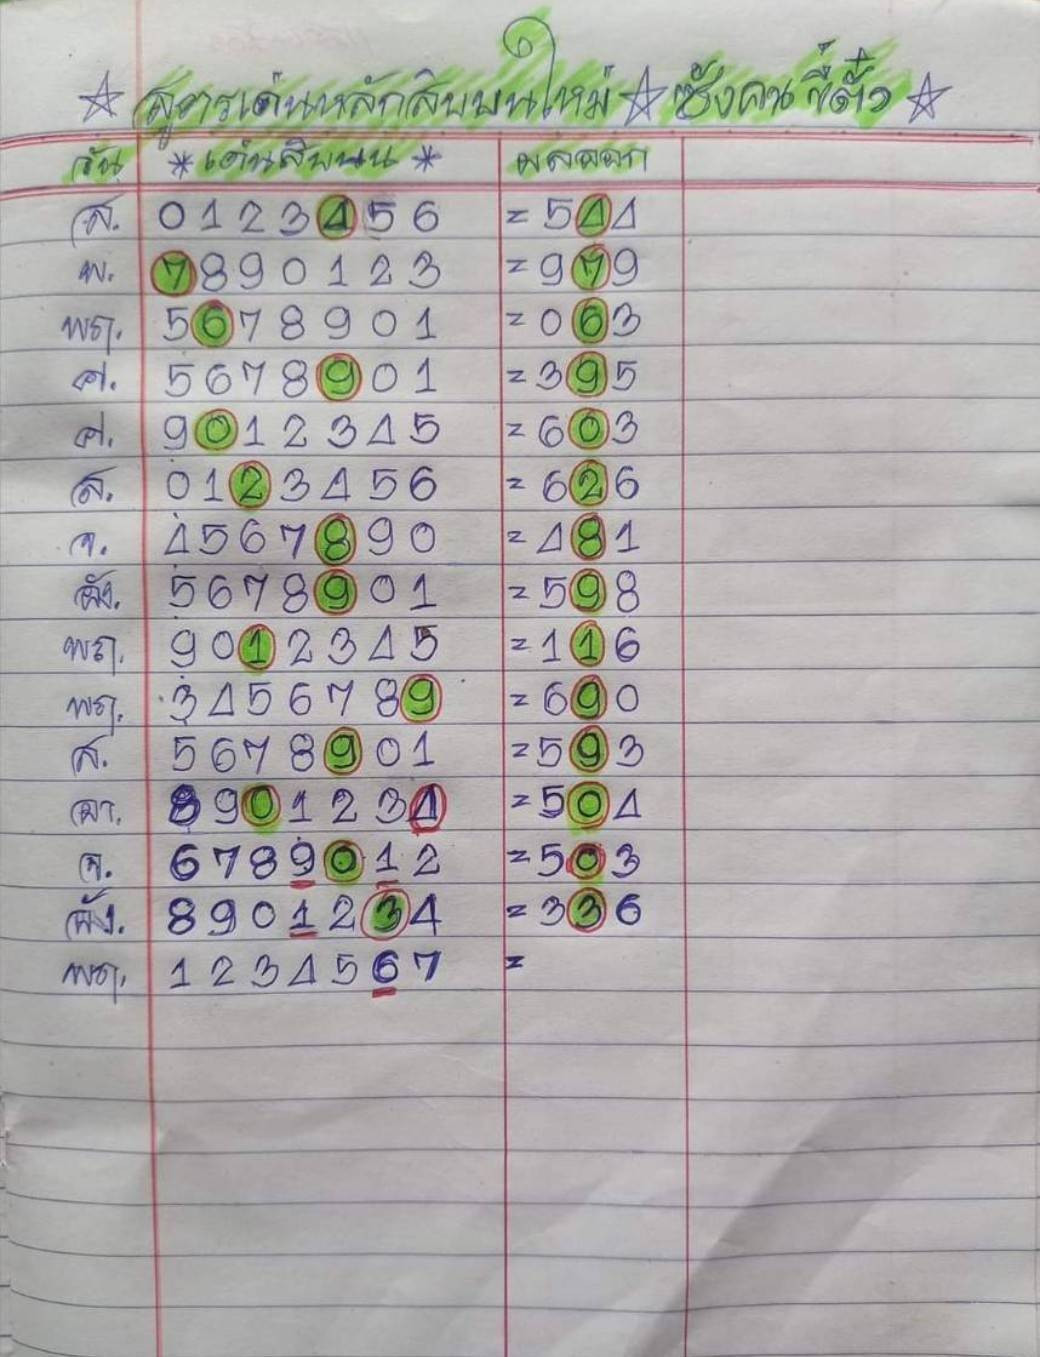 สูตรเด่นหลักสิบบนใหม่
วัน * เด่นสิบบน * ผลออก
ส. 0 1 2 3 4 5 6 = 5 4 4
พ. 7 8 9 0 1 2 3 = 9 7 9
พฤ. 5 6 7 8 9 0 1 = 0 6 3
ศ. 5 6 7 8 9 0 1 = 3 9 5
ศ. 9 0 1 2 3 4 5 = 6 0 3
ส. 0 1 2 3 4 5 6 = 6 2 6
จ. 4 5 6 7 8 9 0 = 4 8 1
อัง. 5 6 7 8 9 0 1 = 5 9 8
พฤ. 9 0 1 2 3 4 5 = 1 1 6
พฤ. 3 4 5 6 7 8 9 = 6 9 0
ส. 5 6 7 8 9 0 1 = 5 9 3
อา. 8 9 0 1 2 3 4 = 5 0 4
จ. 6 7 8 9 0 1 2 = 5 0 3
อัง. 8 9 0 1 2 3 4 = 3 3 6
พฤ. 1 2 3 4 5 6 7 =